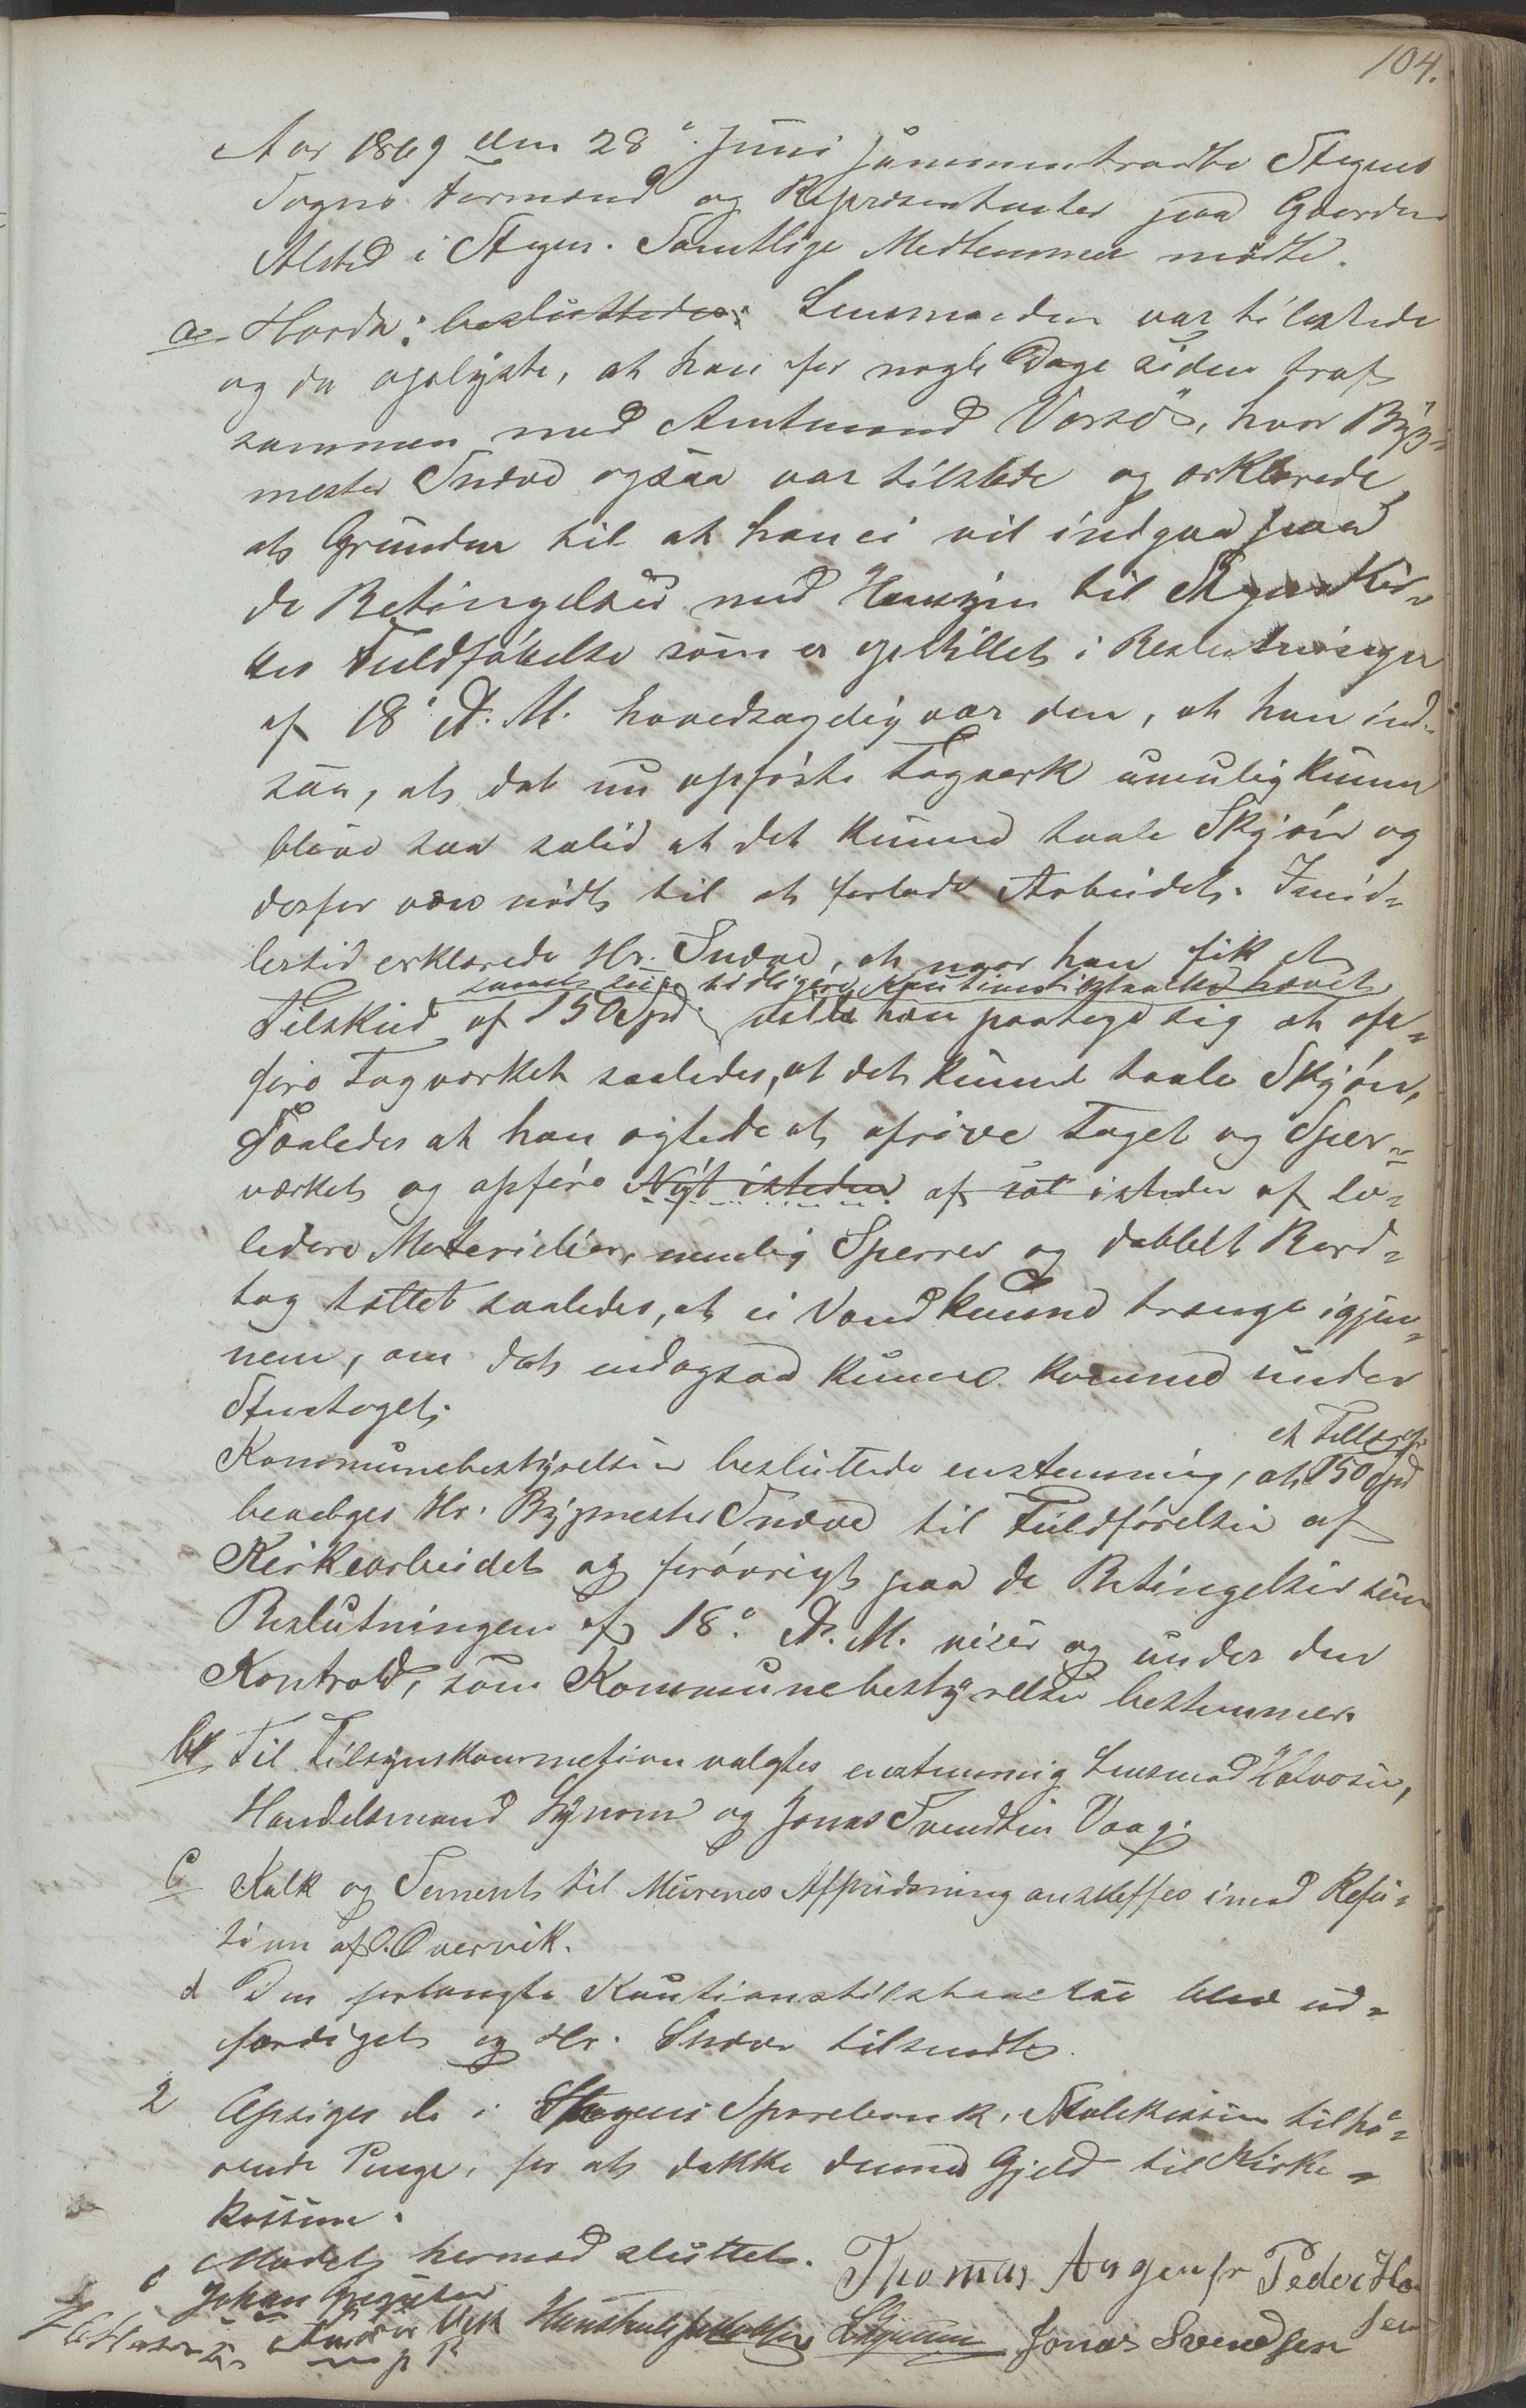 104.
Aar 1869 den 28de Juni sammentraadte Stegens
Sogns Formænd og Repræsentanter paa Gaarden
Alsted i Stegen. Samtlige Medlemmer mødte.
a. Hvorda: besluttedes: Lensmanden var tilstede
og da oplyste, at han for nogle Dage siden traf
sammen med Amtmand Worsø, hvor Byg-
mester Snæve ogsaa var tilstede og erklærede,
at Grunden til at han ei vil indgaa paa
de Betingelser med Hensyn til Stegens Kir-
kes Fuldførelse som er opstillet i Beslutningen
af 18de d. M. hovedsagelig var den, at han ind-
saa, at det nu opførte Tagverk umulig kunne
blive saa solid at det kunne taale Skjøn og
derfor være nødt til at forlade Arbeidet. Imid-
lertid erklærede Hr. Snæve, at naar han fik et
samt sin tidligere Kautionstilstaaelse hævet
Tilskud af 150 Spd. vilde han paatage sig at op-
føre Tagværket saaledes, at det kunde taale Skjøn,
Saaledes at han agtede at afrive Taget og Sper-
værket og opføre Nyt isteden af sat isteden af so-
lidere Materialier, nemlig Sperrer og dobbelt Bord-
tag tættet saaledes, at ei Vand kunne trænge igjen-
nem, om det endogsaa kunne komme under
Stentaget.
et Tillæg af
Kommunebestyrelsen besluttede enstemmig, at 150 Spd
bevilges Hr. Bygmester Snæve til Fuldførelsen af
Kirkearbeidet og forøvrigt paa de Betingelser som
Beslutningen af 18de d. M. viser og under den
Kontrold, som Kommunebestyrelsen bestemmer.
b Til Tilsynskommetion valgtes enstemmig Lensmand Halvorsen,
Handelsmand Synom og Jonas Svendsen Vaag.
c Kalk og Sement til Murenes Afpudsning anskaffes imod Refu-
sion af O. Overvik.
d Den forlangte Kautionstilstaaelse blev ud-
færdiget og Hr. Snæve tilsendt.
2 Opsiges de i Stegens Sparebank, Skolekassen tilhø-
rende Penge, for at dække dennes Gjeld til Kirke-
kassen.
Mødet hermed sluttet. Thomas Aagensen Peder Han
Johan sen
Vik Jakobsen Jonas Svendsen